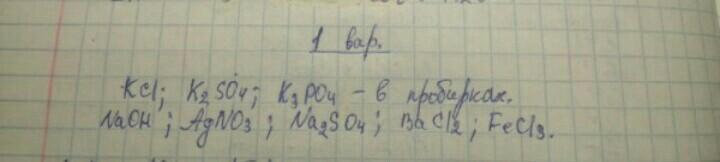 1 вар.
KCl; K2SO4; K3PO4 – в пробирках.
NaOH; AgNO3; Na2SO4; BaCl2; FeCl3.